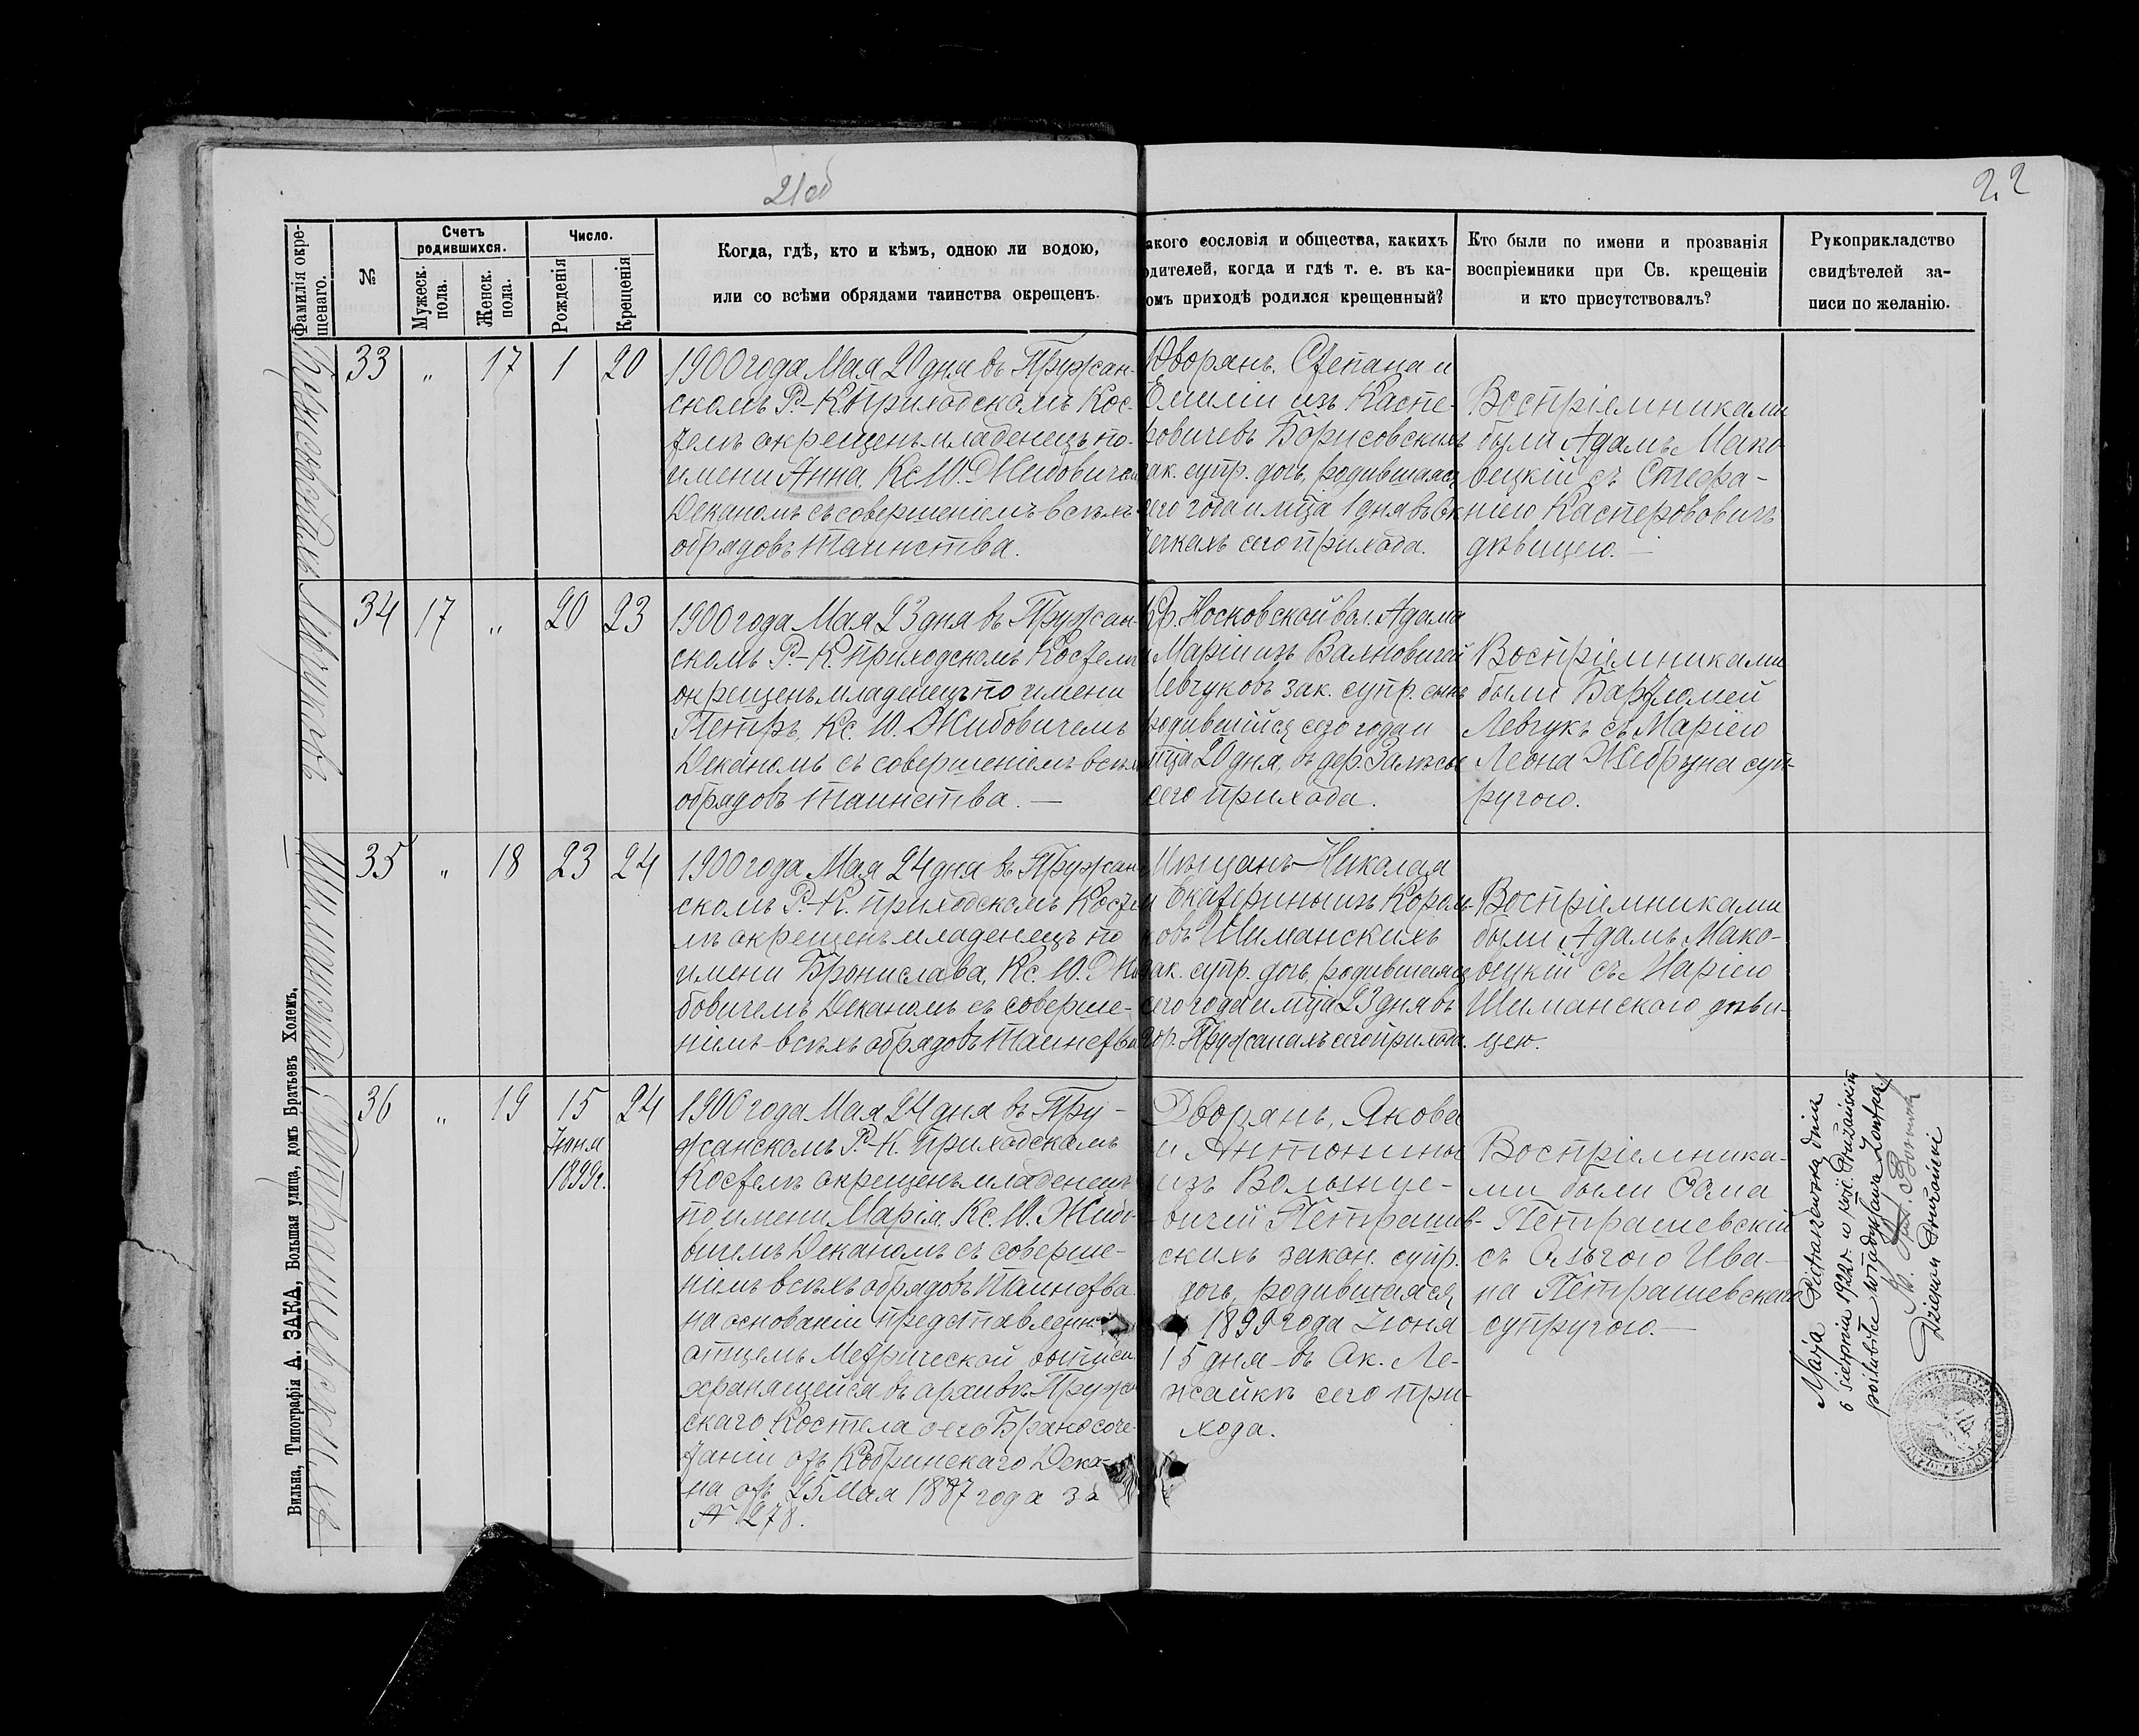 21 об
22
Фамилія окре-
щенаго.
№
Счетъ
родившихся.
Мужеск.
пола.
Женск.
пола.
Число.
Рожденія
Крещенія
Когда, гдѣ, кто и кѣмъ, одною ли водою,
или со всѣми обрядами таинства окрещенъ.
акого сословія и общества, какихъ
одителей, когда и гдѣ т. е. въ ка-
омъ приходѣ родился крещенный?
Кто были по имени и прозванія
воспріемники при Св. крещеніи
и кто присутствовалъ?
Рукоприкладство
свидѣтелей за-
писи по желанію.
33 " 17 1 20
1900 года Мая 20 дня въ Пружан-
скомъ Р.-К. приходскомъ Кос-
телѣ окрещенъ младенецъ по
имени Анна, Кс. Ю. Жибовичемъ
Деканомъ съ совершеніемъ всѣхъ
обрядовъ таинства.
Дворянъ, Степана и
Емиліи изъ Каспе-
ровичевъ Борисовскихъ
зак. супр. дочь, родившаяся
сего года и мца 1 дня въ
сего прихода.
Воспріемниками
были Адамъ Мако-
вецкій съ Стефа-
ніею Касперовичъ
дѣвицею.
Левчуковъ
34 17 " 20 23
1900 года Мая 23 дня въ Пружан-
скомъ Р.-К. приходскомъ Костелѣ
окрещенъ младенецъ по имени
Петръ, Кс. Ю. Жибовичемъ
Деканомъ съ совершеніемъ всѣхъ
обрядовъ таинства.
Кр. Носковской вол. Адама
и Маріи изъ Валновичей
Левчуковъ зак. супр. сынъ
родившійся сего года и
мца 20 дня, въ дер. Залѣсье
сего прихода.
Воспріемниками
были Барѳломей
Левчукъ съ Маріею
Леона Жебруна суп-
ругою.
35 " 18 23 24
1900 года Мая 24 дня въ Пружан-
скомъ Р.-К. приходскомъ Косте-
лѣ окрещенъ младенецъ по
имени Бронислава, Кс. Ю. Жи-
бовичемъ Деканомъ съ соверше-
ніемъ всѣхъ обрядовъ таинства
Мѣщанъ Николая
и Екатерины изъ
Шиманскихъ
зак. супр. дочь, родившаяся
сего года и мца 23 дня въ
гор. Пружанахъ сего прихода.
Воспріемниками
были Адамъ Мако-
вецкій съ Маріею
Шиманскаго дѣви-
цею.
Петрашевскихъ
36 " 19 15 24
Іюня
1899 г.
1900 года Мая 24 дня въ Пру-
жанскомъ Р.-К. приходскомъ
Костелѣ окрещенъ младенецъ
по имени Марія, Кс. Ю. Жибо-
вичемъ Деканомъ съ соверше-
ніемъ всѣхъ обрядовъ таинства
на основаніи представленной
отцемъ Метрической выписи
хранящейся въ архивѣ Пружан-
скаго Костела о его Бракосоче-
таніи отъ Кобринскаго Дека-
на отъ 25 Мая 1887 года за
№ 278.
Дворянъ, Якова
и Антонины
изъ Волынце-
вичей Петрашев-
скихъ закон. супр.
дочь, родившаяся
1899 года Іюня
15 дня въ Ок. Ле-
жайкѣ сего при-
хода.
Воспріемника-
ми были Ѳома
Петрашевскій
съ Ольгою Ива-
на Петрашевскаго
супругою.
Marja Pietraszewska dnia
6 sierpnia 1922 r. w kośc. Prużańskim
poślubiła Władysława
Dziekan Prużański
Вильна, Типографія А. ЗАКА, Большая улица, домъ Братьевъ Холемъ.